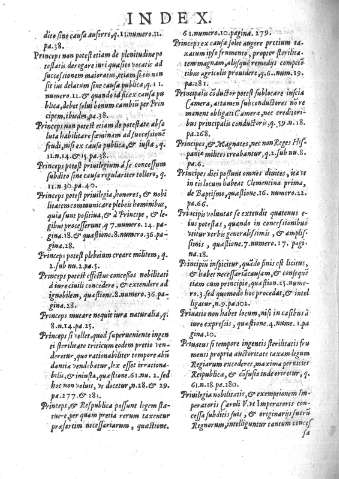 INDEX.
dito sine causa auferri, q.11. numero.11.
pa.38.
Princeps non potest etiam de plenitudine po
testatis derogare iuri quæsitæ vocatis ad
successionem maioratus, etiam si eis non
sit ius delatum sine causa publica, q.11.
numero.11. & quando id ex causa pu
blica, debet solui bonum cambium per Prin
cipem, ibidem, pa.38.
Princeps non potest etiam de potestate absolu
ta habilitare fœminam ad successionē
feudi, nisi ex causa publica, & iusta, q.
11. n.14. & 15. pa.38.
Princeps potest priuilegium à se concessum
subdito sine causa regulariter tollere, q.
11. n.30. pa.40.
Princeps potest priuilegia, honores, & nobi
litatem communicare plebeis hominibus,
quia sunt positiua, & à Principe, & le
gibus processerunt. q.7. numero.14. pa-
gina.18. & quæstione.8. numero.36. pa-
gina.28.
Princeps potest plebeium creare militem, q.
2. sub nu.2. pa.5.
Princeps potest effectus concessos nobilitati
à iure ciuili concedere, & extendere ad
ignobilem, quæstione.8. numero.36. pa-
gina.28.
Princeps mutare nequit iura naturalia, q.
8. n.14. pa.25.
Princeps si vellet, quod superueniente ingen
ti sterilitate triticum eodem pretio ven-
deretur, quo rationabiliter tempore abū
dantiæ vendebatur, lex esset irrationa-
bilis, & iniusta, quæstione.61. nu.2. sed
hoc non valet, vt docetur, n.28. & 29.
pa.277. & 281.
Princeps, & Respublica possunt legem sta-
tuere, per quam pretia rerum taxentur
præsertim necessariarum, quæstione.
61. numero.10. pagina.279.
Princeps ex causa solet augere pretium ta-
xatum ipsi frumento, propter sterilita-
tem magnam, alijsque remedijs compete
tibus agricolis prouidere, q.61. num.19.
pa.281.
Principalis conductor potest sublocare in sci a
Camera, attamen subconductores nō re
manent obligati Cameræ, nec creditori-
bus principalis conductoris, q.59. n.18.
pa.268.
Principes, & Magnates, per nos Reges His
paniæ milites creabantur, q.2. sub nu.8.
pa.6.
Principes dici possunt omnes diuites, ita ve
re in eis locum habeat Clementina prima,
de Baptismo, quæstione.16. numero.22.
pa.66.
Principis voluntas se extendit quatenus e-
ius potestas, quando in concessionibus
vtitur verbis generalissimis, & amplis-
simis, quæstione.7. numero.17. pagi-
na.18.
Principium inspicitur, quādo finis est licitus,
& habet necessariā causam, & conseque
tiam cum principio, quæstione.15. nume-
ro.3. sed quomodo hoc procedat, & intel
ligatur, n.9. pa.102.
Priuatio non habet locum, nisi in casibus à
iure expressis, quæstione.4. nume.1. pa-
gina.10.
Priuatus si tempore ingentis sterilitatis fru
menti propria auctoritate taxam legum
Regiarum excederet, maxima perniciei
Reipublicæ, & cōfusio inde oriretur, q.
61. n.18. pa.280.
Priuilegia nobilitatis, & exemptionem Im-
peratoris Caroli V. vt Imperatoris con-
cessa subditis suis, & originarijs suorū
Regnorum, intelliguntur tantum concef
sa